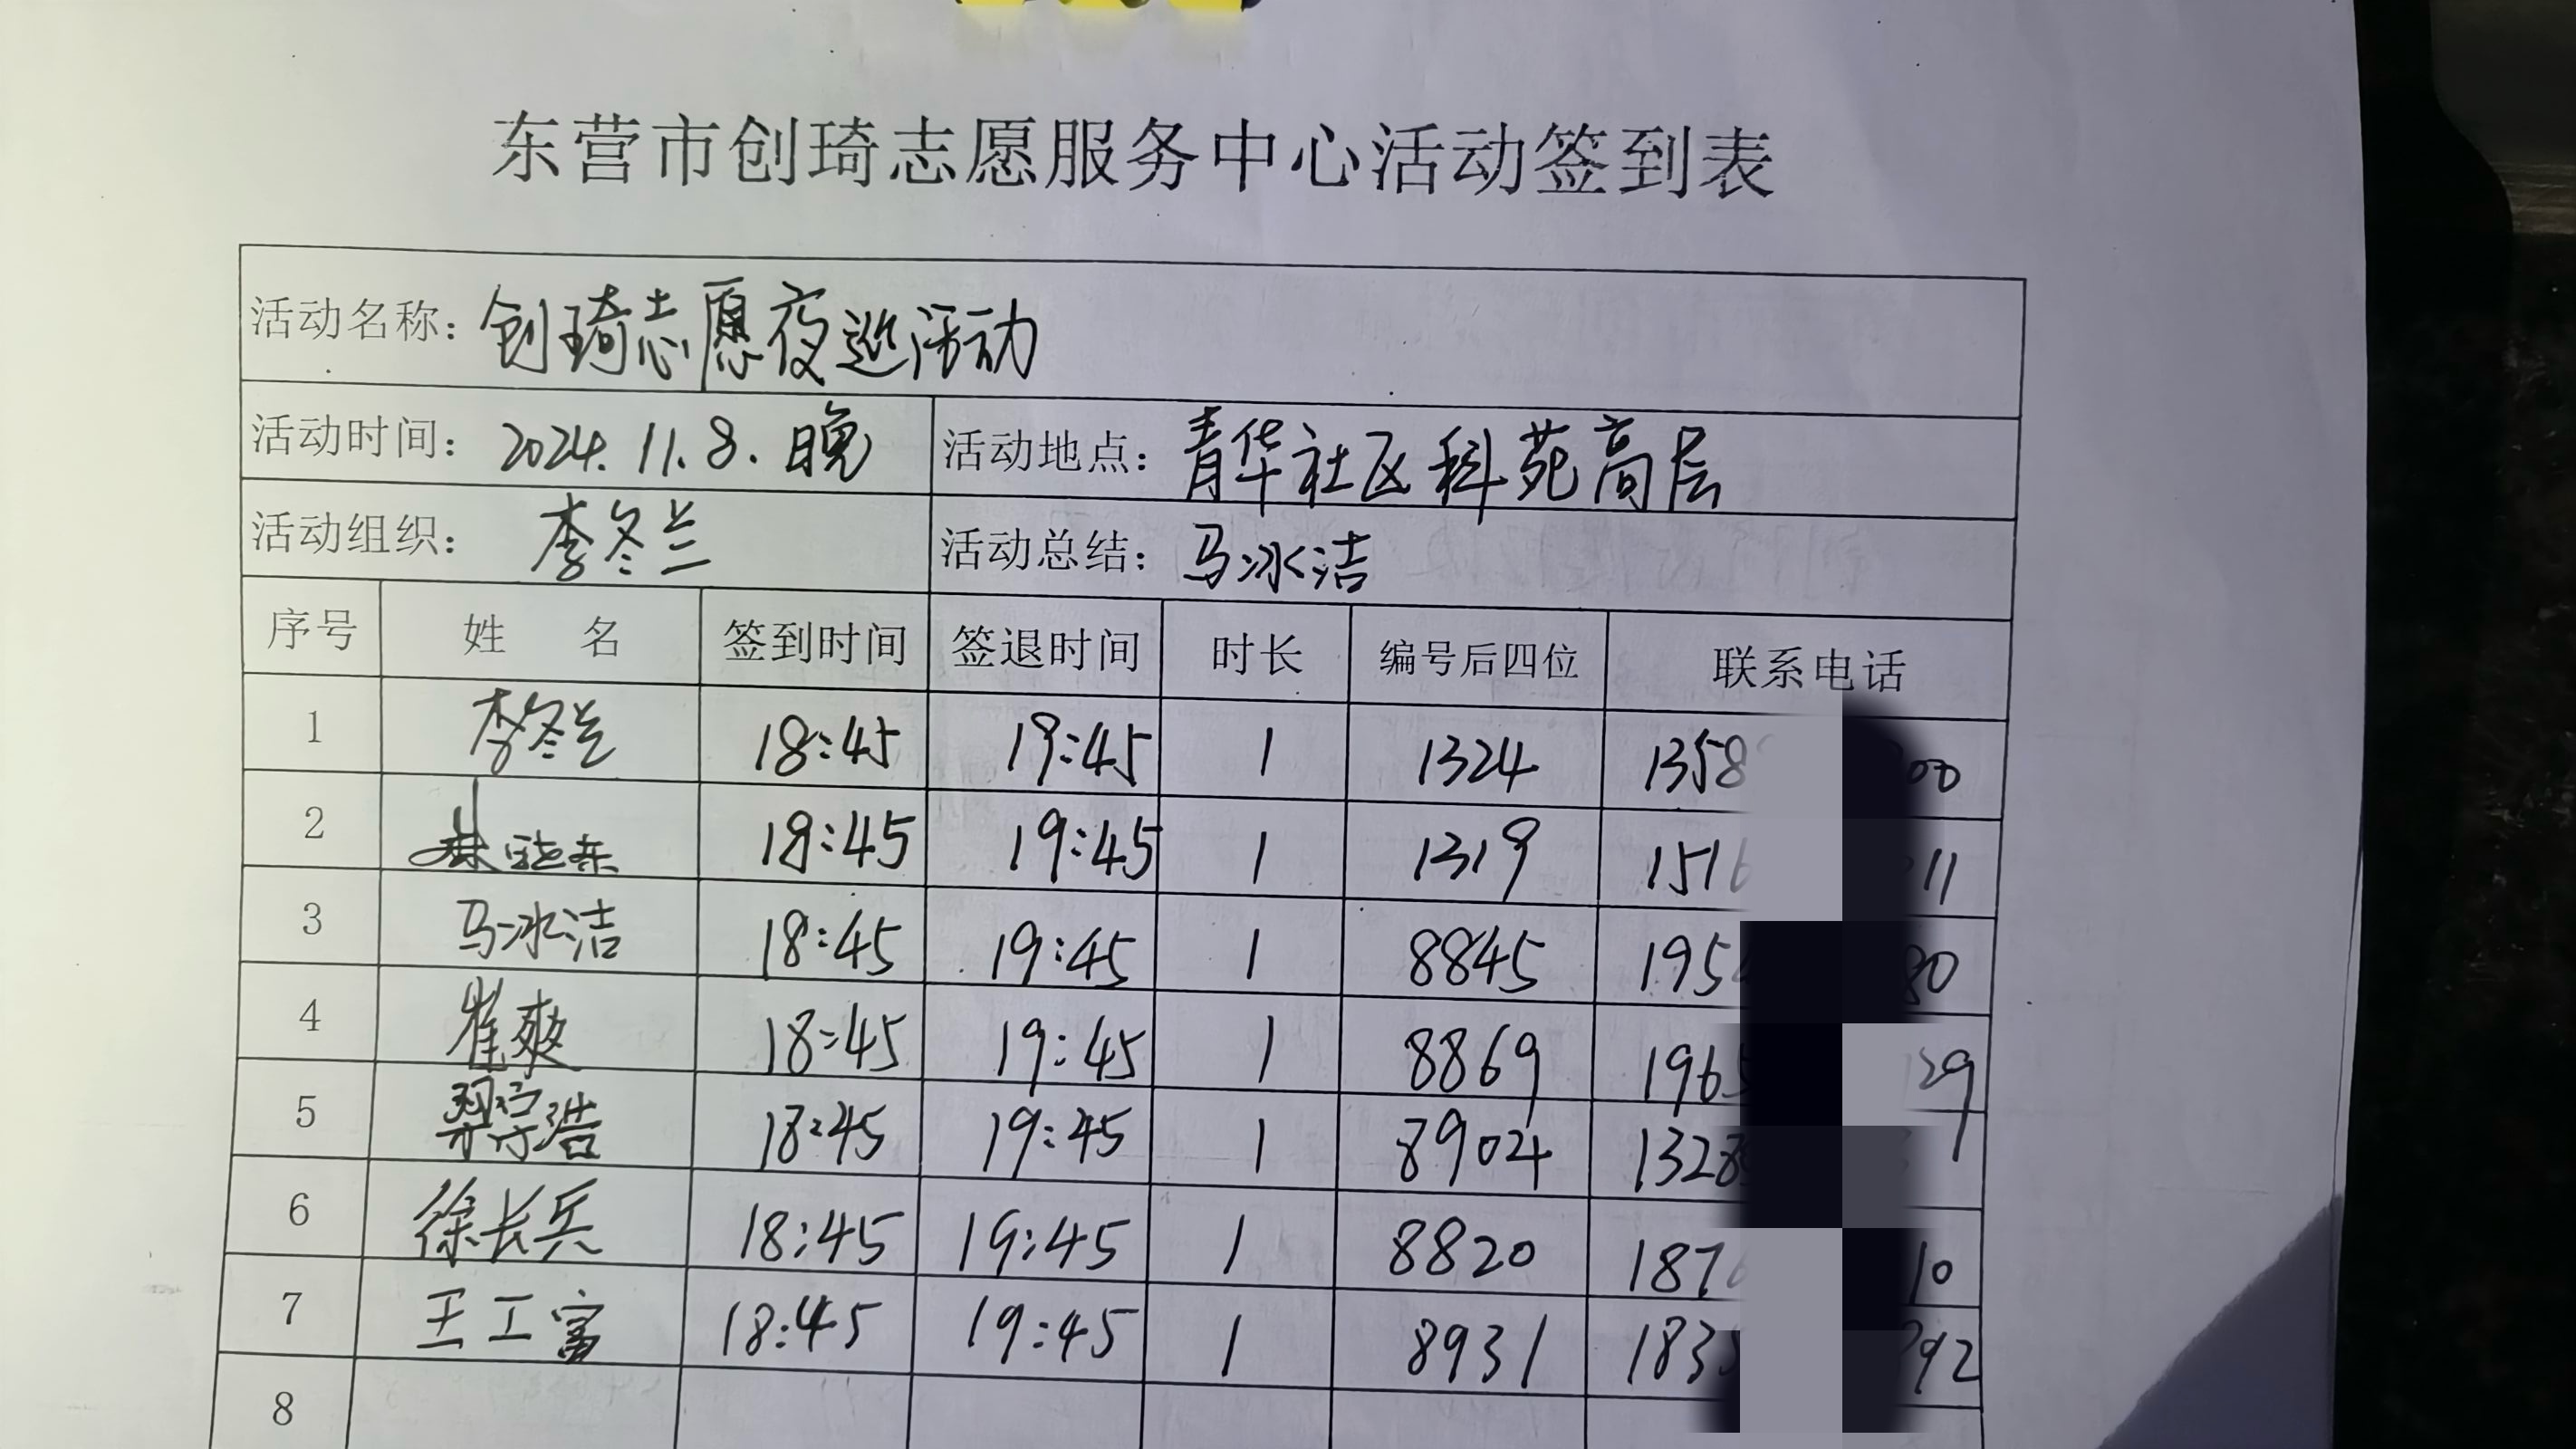 东营市创琦志愿服务中心活动签到表
活动名称：创琦志愿夜巡活动
活动时间：2024.11.8.晚 活动地点：青华社区科苑高层
活动组织：李冬兰 活动总结：马冰洁
序号 姓名 签到时间 签退时间 时长 编号后四位 联系电话
1 李冬兰 18:45 19:45 1 1324 1358 00
2 18:45 19:45 1 1319 1516 11
3 马冰洁 18:45 19:45 1 8845 195 80
4 崔爽 18:45 19:45 1 8869 1965 29
5 18:45 19:45 1 8904 1328
6 徐长兵 18:45 19:45 1 8820 187 10
7 王工富 18:45 19:45 1 8931 183 92
8